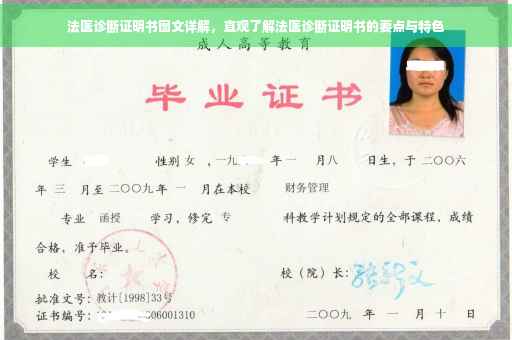 法医诊断证明书图文详解，直观了解法医诊断证明书的要点与特色
成人高等教育
毕业证书
学生 性别 女 ，一九 年 一 月 八 日生，于 二〇〇六
年 三 月至 二〇〇九 年 一 月在本校 财务管理
专业 函授 学习，修完 专 科教学计划规定的全部课程，成绩
合格，准予毕业。
校 名： 校（院）长：
批准文号：教计[1998]33号
证书编号： 06001310 二〇〇九 年 一 月 十 日